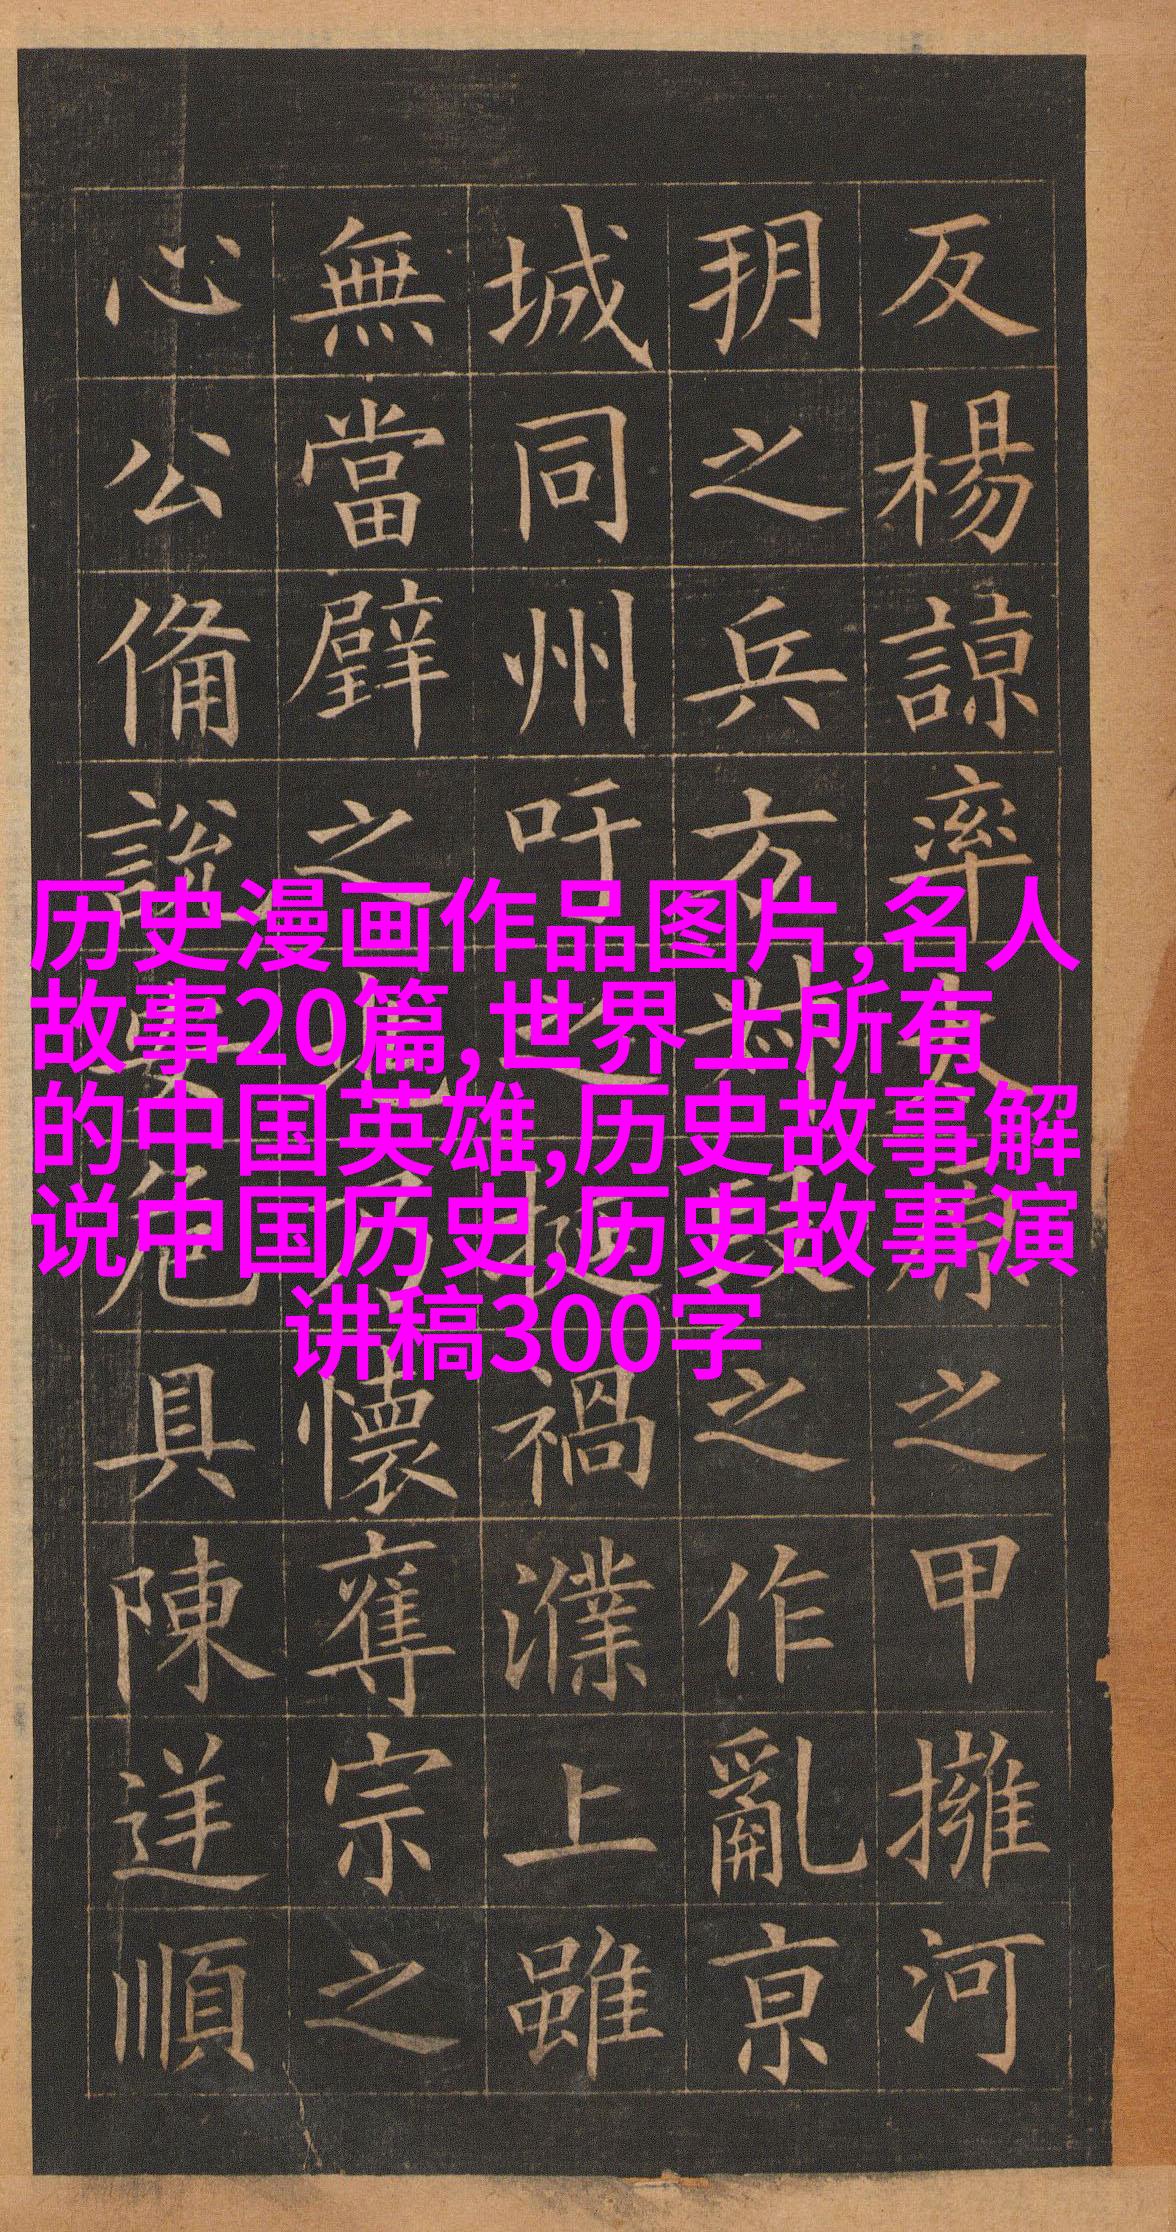 反楊諒率太原之甲擁河
朔之兵方叔段之作亂京
城同州吁之挺禍濮上雖
無當璧之兆乃懷奪宗之
心公備說安危具陳逆順
历史漫画作品图片,名人
故事20篇,世界上所有
的中国英雄,历史故事解
说中国历史,历史故事演
讲稿300字